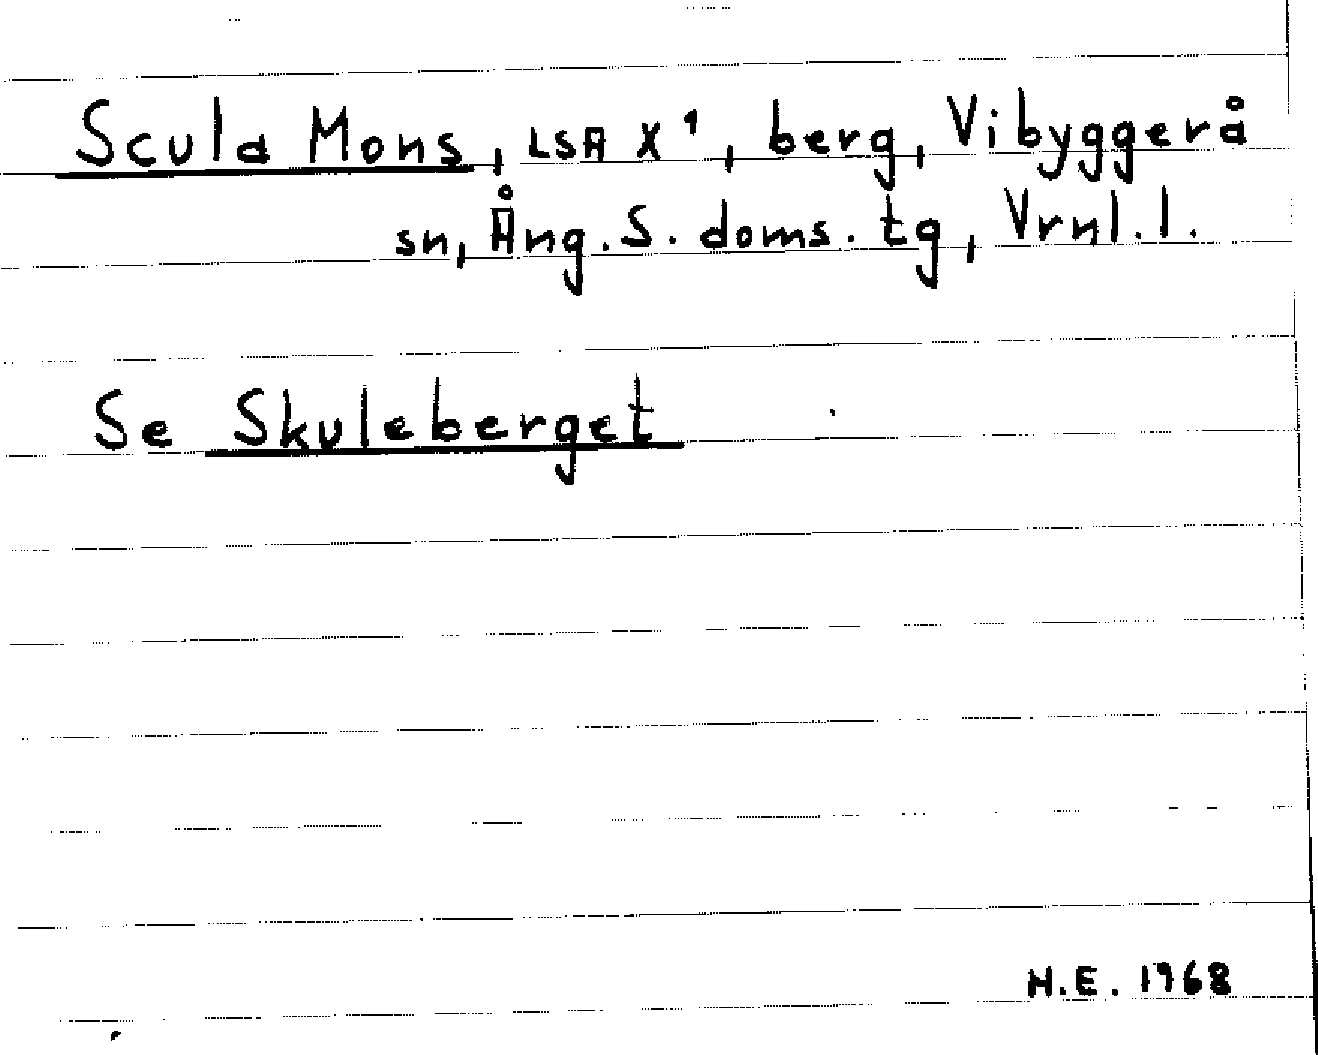 Scula Mons, LSA X¹, berg, Vibyggerå
sn, Ång. S. doms. tg, Vrnl. l.
Se Skuleberget
H.E. 1968